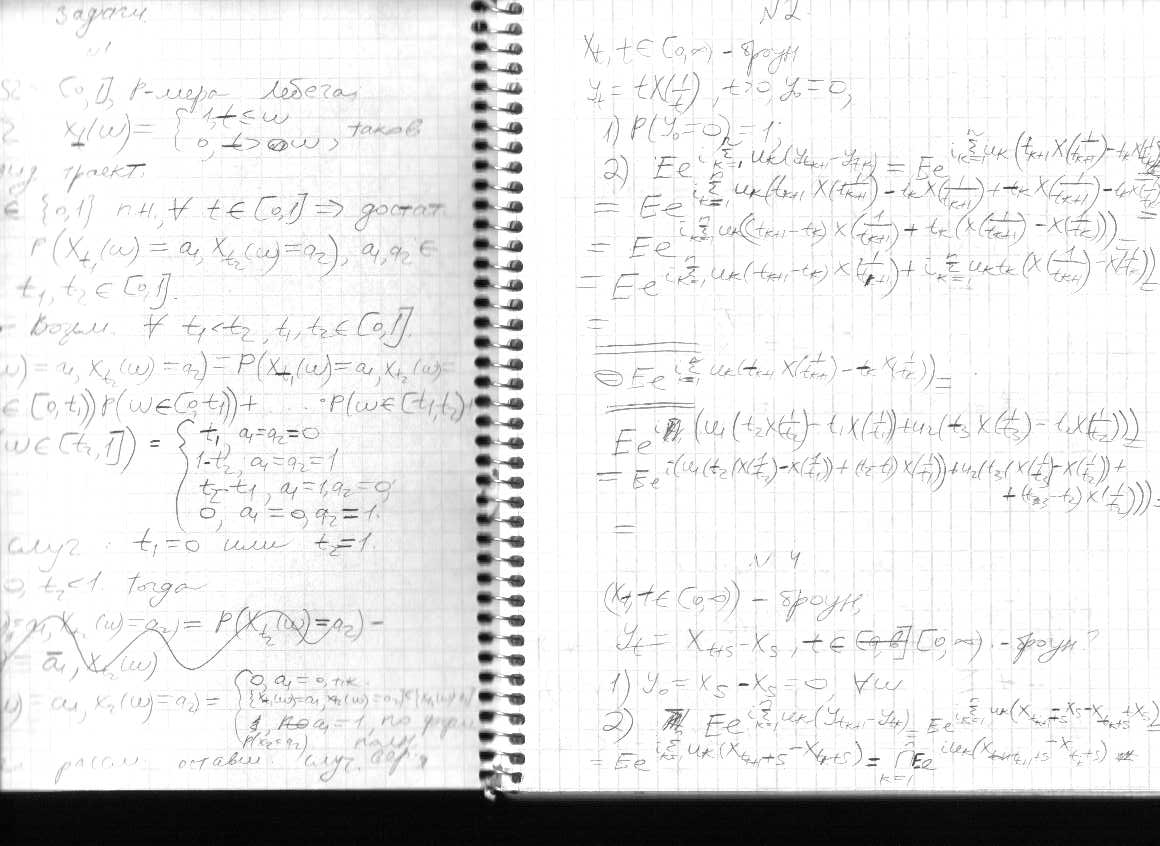 Задачи.
N1
Ω = [0,1], P-мера Лебега,
X_t(ω) = { 1, t ≤ ω
0, t > ω, таков
траект.
∈ {0,1} п.н. ∀ t ∈ [0,1] => достат.
P(X_t₁(ω) = a₁, X_t₂(ω) = a₂), a₁, a₂ ∈
t₁, t₂ ∈ [0,1].
Возьм. ∀ t₁<t₂, t₁,t₂ ∈ [0,1].
) = a₁, X_t₂(ω) = a₂) = P(X_t₁(ω) = a₁, X_t₂(ω) =
∈ [0,t₁)) P(ω ∈ [0,t₁)) + ... · P(ω ∈ [t₁,t₂)
(ω ∈ [t₂,1]) = { t₁, a₁=a₂=0
1-t₂, a₁=a₂=1
t₂-t₁, a₁=1, a₂=0,
0, a₁=0, a₂=1.
случ. t₁=0 или t₂=1.
0, t₂<1. Тогда
= a₁, X_t₂(ω) = a₂) = P(X_t₂(ω) = a₂) -
= a₁, X_t₂(ω)
) = a₁, X_t₂(ω) = a₂) = { 0, a₁ = 0, т.к.
a₁ = 1, по
P(X_t₂=a₂)
оставш. случ.
N2
X_t, t ∈ [0,∞) - броун
Y_t = tX(1/t), t>0, Y₀ = 0,
1) P(Y₀ = 0) = 1;
2) Ee^{i∑_{k=1}^n u_k(Y_{t_{k+1}} - Y_{t_k})} = Ee^{i∑_{k=1}^n u_k(t_{k+1}X(1/t_{k+1}) - t_kX(1/t_k))}
= Ee^{i∑_{k=1}^n u_k(t_{k+1}X(1/t_{k+1}) - t_kX(1/t_{k+1}) + t_kX(1/t_{k+1}) - t_kX(1/t_k))} =
= Ee^{i∑_{k=1}^n u_k((t_{k+1}-t_k)X(1/t_{k+1}) + t_k(X(1/t_{k+1}) - X(1/t_k)))} =
= Ee^{i∑_{k=1}^n u_k(t_{k+1}-t_k)X(1/t_{k+1}) + i∑_{k=1}^n u_kt_k(X(1/t_{k+1}) - X(1/t_k))} =
=
⊜ Ee^{i∑_{k=1}^n u_k(t_{k+1}X(1/t_{k+1}) - t_kX(1/t_k))} =
Ee^{i(u₁(t₂X(1/t₂) - t₁X(1/t₁)) + u₂(t₃X(1/t₃) - t₂X(1/t₂)))} =
= Ee^{i(u₁(t₂(X(1/t₂) - X(1/t₁)) + (t₂-t₁)X(1/t₁)) + u₂(t₃(X(1/t₃) - X(1/t₂)) +
+ (t₃-t₂)X(1/t₂)))} =
=
N4
(X_t, t ∈ [0,∞)) - броун,
Y_t = X_{t+s} - X_s, t ∈ [0,∞). - броун?
1) Y₀ = X_s - X_s = 0, ∀ω
2) Ee^{i∑_{k=1}^n u_k(Y_{t_{k+1}} - Y_{t_k})} = Ee^{i∑_{k=1}^n u_k(X_{t_{k+1}+s} - X_s - X_{t_k+s} + X_s)} =
= Ee^{i∑_{k=1}^n u_k(X_{t_{k+1}+s} - X_{t_k+s})} = ∏_{k=1}^n Ee^{iu_k(X_{t_{k+1}+s} - X_{t_k+s})}